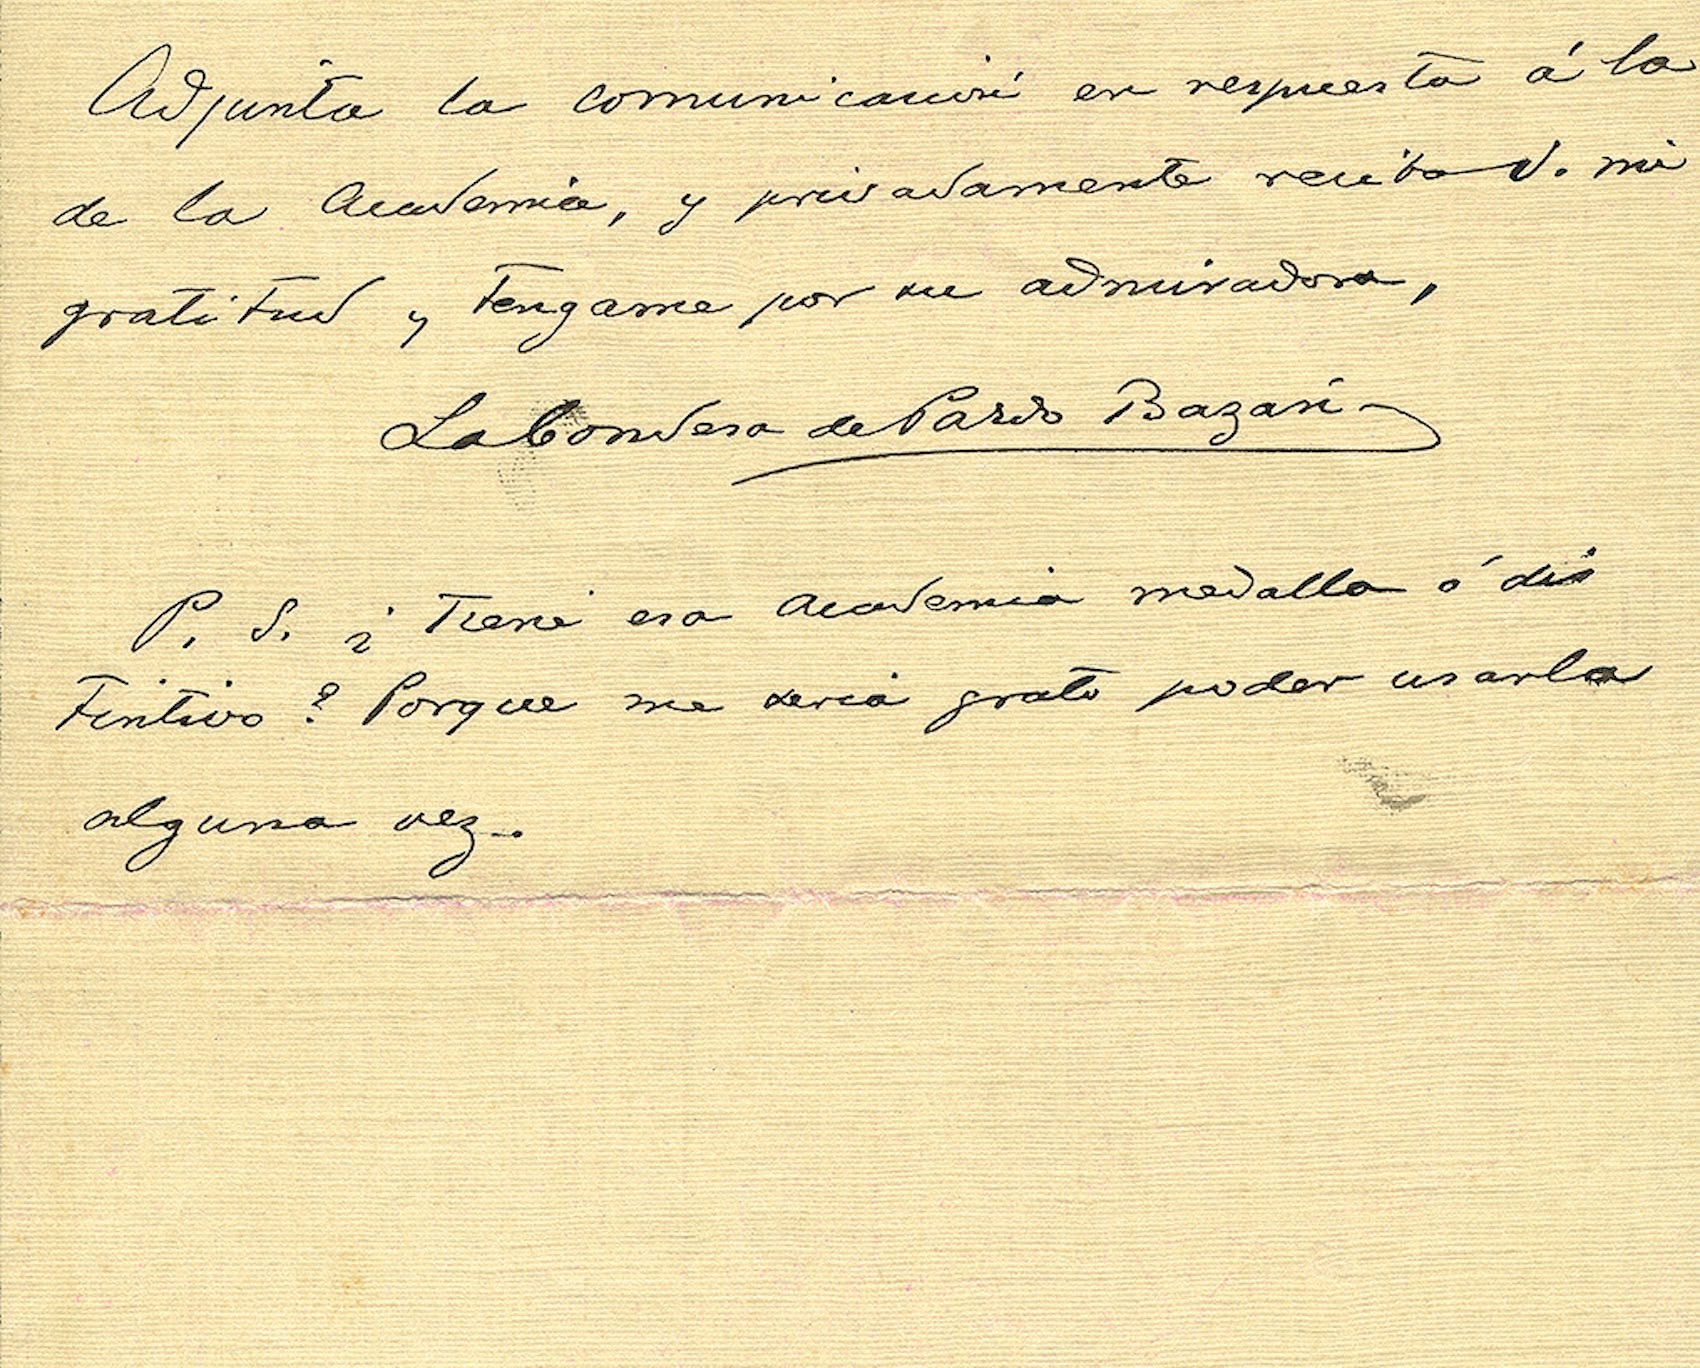 Adjunta la comunicación en respuesta á la
de la Academia, y privadamente reciba V. mi
gratitud y tengame por su admiradora,
La Condesa de Pardo Bazán
P. S. ¿Tiene esa Academia medalla ó dis
tintivo? Porque me seria grato poder usarla
alguna vez..